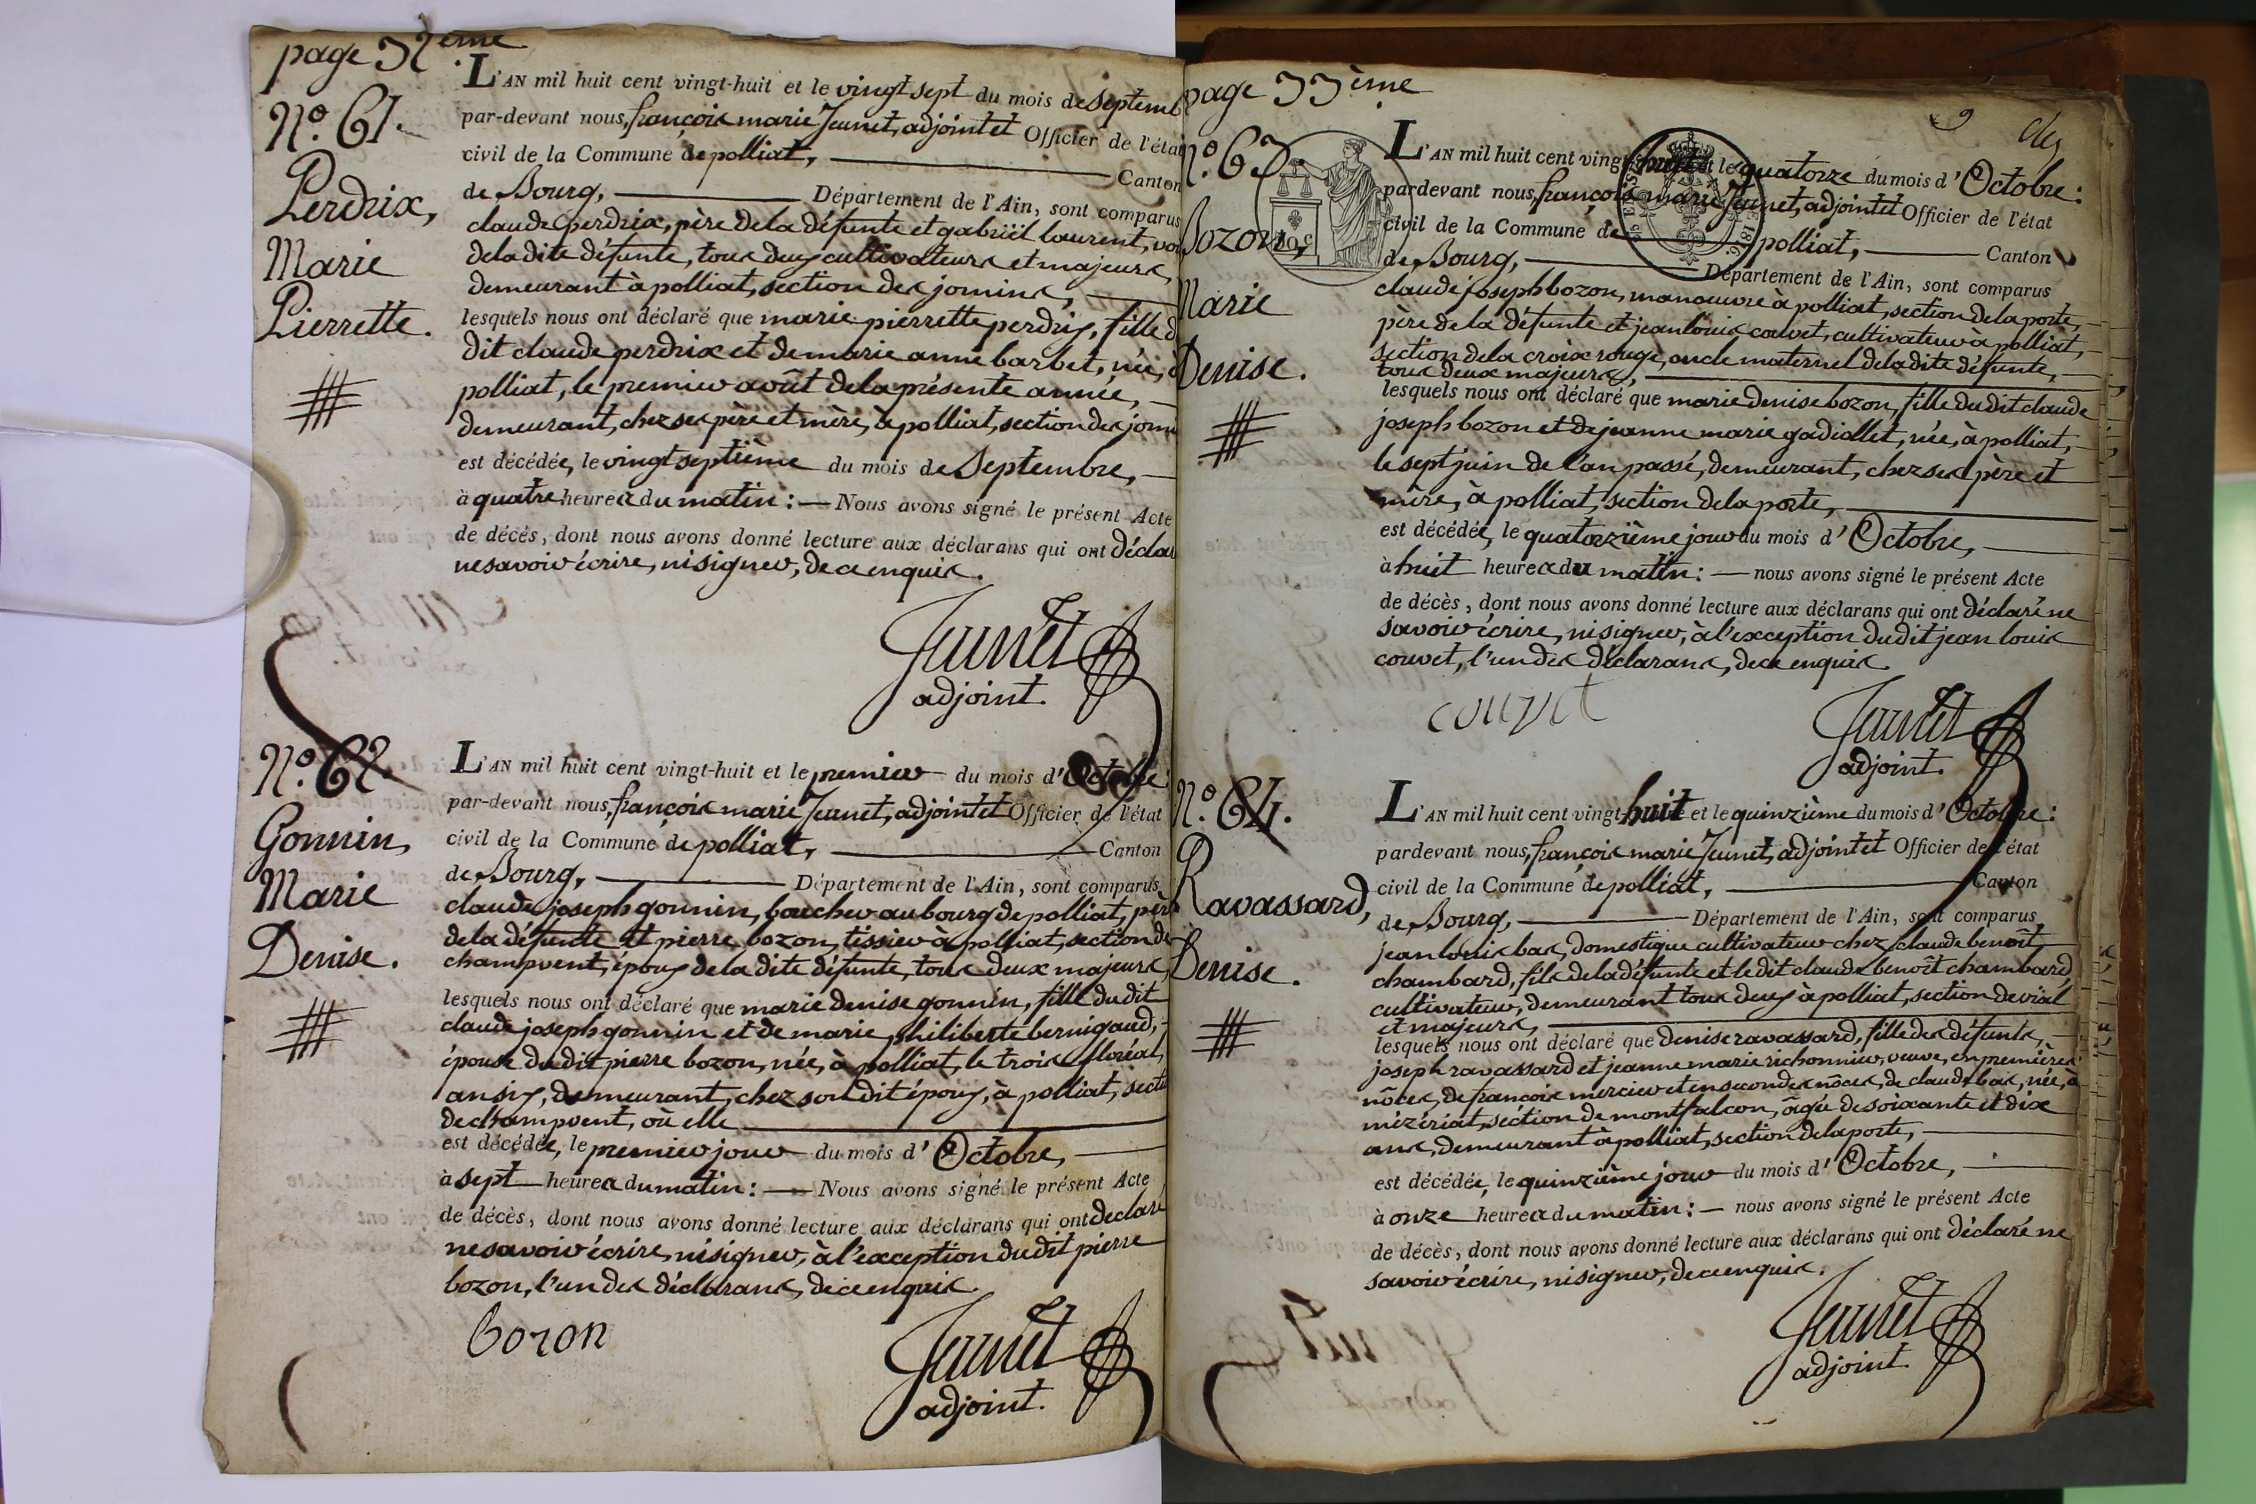 page 32ème
N.º 61.
Perdrix,
Marie
Pierrette.
L'AN mil huit cent vingt-huit et le vingt sept du mois de septemb
par-devant nous, françois marie Jeunet, adjoint et Officier de l'état
civil de la Commune de polliat, Canton
de Bourg, Département de l'Ain, sont comparus
claude perdrix, père de la défunte et gabriël laurent, voi
de la dite défunte, tous deux cultivateurs et majeurs,
demeurant à polliat, section des jomins,
lesquels nous ont déclaré que marie pierrette perdrix, fille d
dit claude perdrix et de marie anne barbet, née, à
polliat, le premier août de la présente année,
demeurant, chez ses père et mère, à polliat, section des jomi
est décédée, le vingt septième du mois de Septembre,
à quatre heures du matin : — Nous avons signé le présent Acte
de décès, dont nous avons donné lecture aux déclarans qui ont déclar
ne savoir écrire, ni signer, de ce enquis.
Jeunet
adjoint.
N.º 62.
Gonnin,
Marie
Denise.
L'AN mil huit cent vingt-huit et le premier du mois d'Octobre
par-devant nous, françois marie Jeunet, adjoint et Officier de l'état
civil de la Commune de polliat, Canton
de Bourg, Département de l'Ain, sont comparus
claude joseph gonnin, boucher au bourg de polliat, père
de la défunte et pierre bozon, tissier à polliat, section de
champvent, époux de la dite défunte, tous deux majeurs,
lesquels nous ont déclaré que marie denise gonnin, fille du dit
claude joseph gonnin et de marie philiberte bernigaud,
épouse du dit pierre bozon, née, à polliat, le trois floréal,
an six, demeurant, chez son dit époux, à polliat, secti
de champvent, où elle
est décédée, le premier jour du mois d'Octobre,
à sept heures du matin : — Nous avons signé le présent Acte
de décès, dont nous avons donné lecture aux déclarans qui ont déclaré
ne savoir écrire, ni signer, à l'exception du dit pierre
bozon, l'un des déclarans, de ce enquis.
bozon
Jeunet
adjoint.
page 33ème
9
N.º 63
Bozon,
Marie
Denise.
L'AN mil huit cent vingt-huit et le quatorze du mois d'Octobre :
pardevant nous, françois marie Jeunet, adjoint et Officier de l'état
civil de la Commune de polliat, Canton
de Bourg, Département de l'Ain, sont comparus
claude joseph bozon, manœuvre à polliat, section de la porte,
père de la défunte et jean louis couvet, cultivateur à polliat,
section de la croix rouge, oncle maternel de la dite défunte,
tous deux majeurs,
lesquels nous ont déclaré que marie denise bozon, fille du dit claude
joseph bozon et de jeanne marie gadiollet, née, à polliat,
le sept juin de l'an passé, demeurant, chez ses père et
mère, à polliat, section de la porte,
est décédée, le quatorzième jour du mois d'Octobre,
à huit heures du matin : — nous avons signé le présent Acte
de décès, dont nous avons donné lecture aux déclarans qui ont déclaré ne
savoir écrire, ni signer, à l'exception du dit jean louis
couvet, l'un des déclarans, de ce enquis.
couvet
Jeunet
adjoint.
N.º 64.
Ravassard,
Denise.
L'AN mil huit cent vingt-huit et le quinzième du mois d'Octobre :
pardevant nous, françois marie Jeunet, adjoint et Officier de l'état
civil de la Commune de polliat, Canton
de Bourg, Département de l'Ain, sont comparus
jean louis bas, domestique cultivateur chez claude benoît
chambard, fils de la défunte et le dit claude benoît chambard
cultivateur, demeurant tous deux à polliat, section de vial
et majeurs,
lesquels nous ont déclaré que denise ravassard, fille des défunts,
joseph ravassard et jeanne marie richonnier, veuve, en premières
nôces, de françois mercier et en secondes nôces, de claude bas, née, à
mézériat, section de montfalcon, âgée de soixante et dix
ans, demeurant à polliat, section de la porte,
est décédée, le quinzième jour du mois d'Octobre,
à onze heures du matin : — nous avons signé le présent Acte
de décès, dont nous avons donné lecture aux déclarans qui ont déclaré ne
savoir écrire, ni signer, de ce enquis.
Jeunet
adjoint